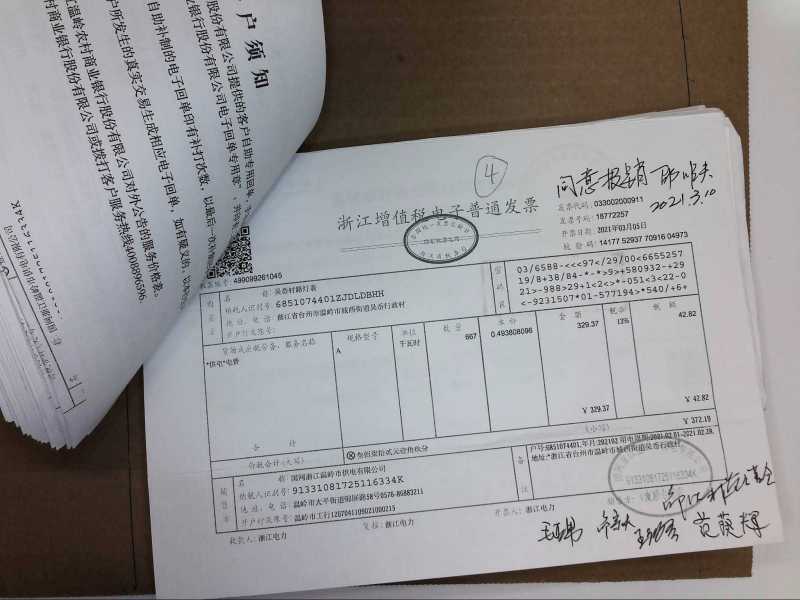 户须知
股份有限公司提供的客户自助专用回单
业银行股份有限公司电子回单专用章
自助补制的电子回单印有补打次数,以最后一次
户所发生的真实交易生成相应电子回单,如有疑义的,以
温岭农村商业银行股份有限公司对外公告的服务价格表。
村商业银行股份有限公司或拨打客户服务热线4008896596.
国网浙江温岭市供电有限公司
④
同意报销
2021.3.10
浙江增值税电子普通发票
发票代码: 033002000911
发票号码: 18772257
开票日期: 2021年03月05日
校验码: 14177 52937 70916 04973
机器编号: 499099261045
名称: 吴岙村路灯表
纳税人识别号: 6851074401ZJDLDBHH
地址、电话: 浙江省台州市温岭市城西街道吴岙行政村
开户行及账号:
03/6588-<<<97</29/00<6655257
19/8+38/84-*-*>9>+580932-+29
21>-988>29+1<2<>*-051<3<22-0
<-9231507*01-577194>*540/+6+
货物或应税劳务、服务名称 规格型号 单位 数量 单价 金额 税率 税额
*供电*电费 A 千瓦时 667 0.493808096 329.37 13% 42.82
合计 ¥ 329.37 ¥ 42.82
价税合计(大写) ⊗叁佰柒拾贰元壹角玖分 (小写) ¥ 372.19
名称: 国网浙江温岭市供电有限公司
纳税人识别号: 91331081725116334K
地址、电话: 温岭市太平街道锦屏路58号0576-86883211
开户行及账号: 温岭市工行1207041109021000215
备注
户号:6851074401,年月:202102 用电退期:2021.02.01-2021.02.28,
地址:*浙江省台州市温岭市城西街道吴岙行政村
91331081725116334K
收款人: 浙江电力 复核: 浙江电力 开票人: 浙江电力